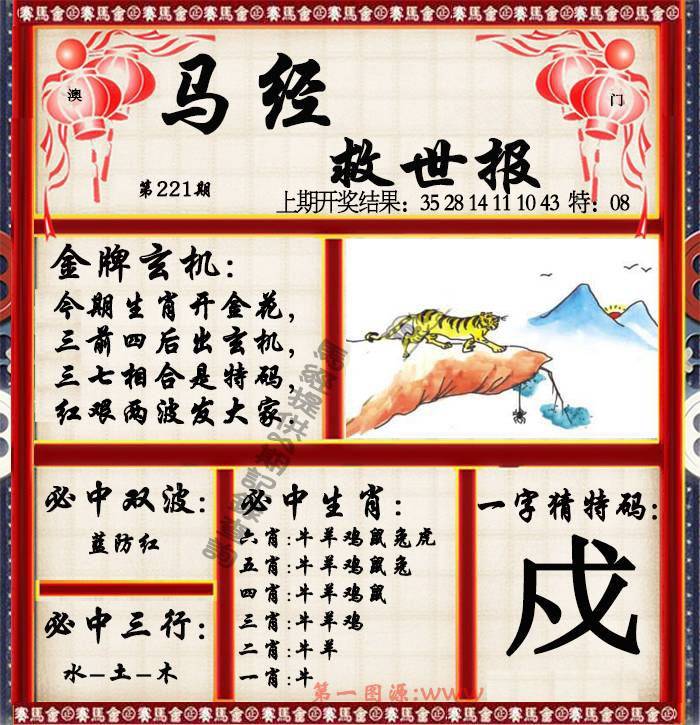 賽馬會 賽馬會 賽馬會 賽馬會 賽馬會 賽馬會 賽馬會
澳
门
马经
救世报
第221期
上期开奖结果：35 28 14 11 10 43 特：08
金牌玄机：
今期生肖开金花，
三前四后出玄机，
三七相合是特码，
红艰两波发大家.
必中双波：
蓝防红
必中三行：
水–土–木
必中生肖：
六肖:牛羊鸡鼠兔虎
五肖:牛羊鸡鼠兔
四肖:牛羊鸡鼠
三肖:牛羊鸡
二肖:牛羊
一肖:牛
一字猜特码：
戍
第一图源:www